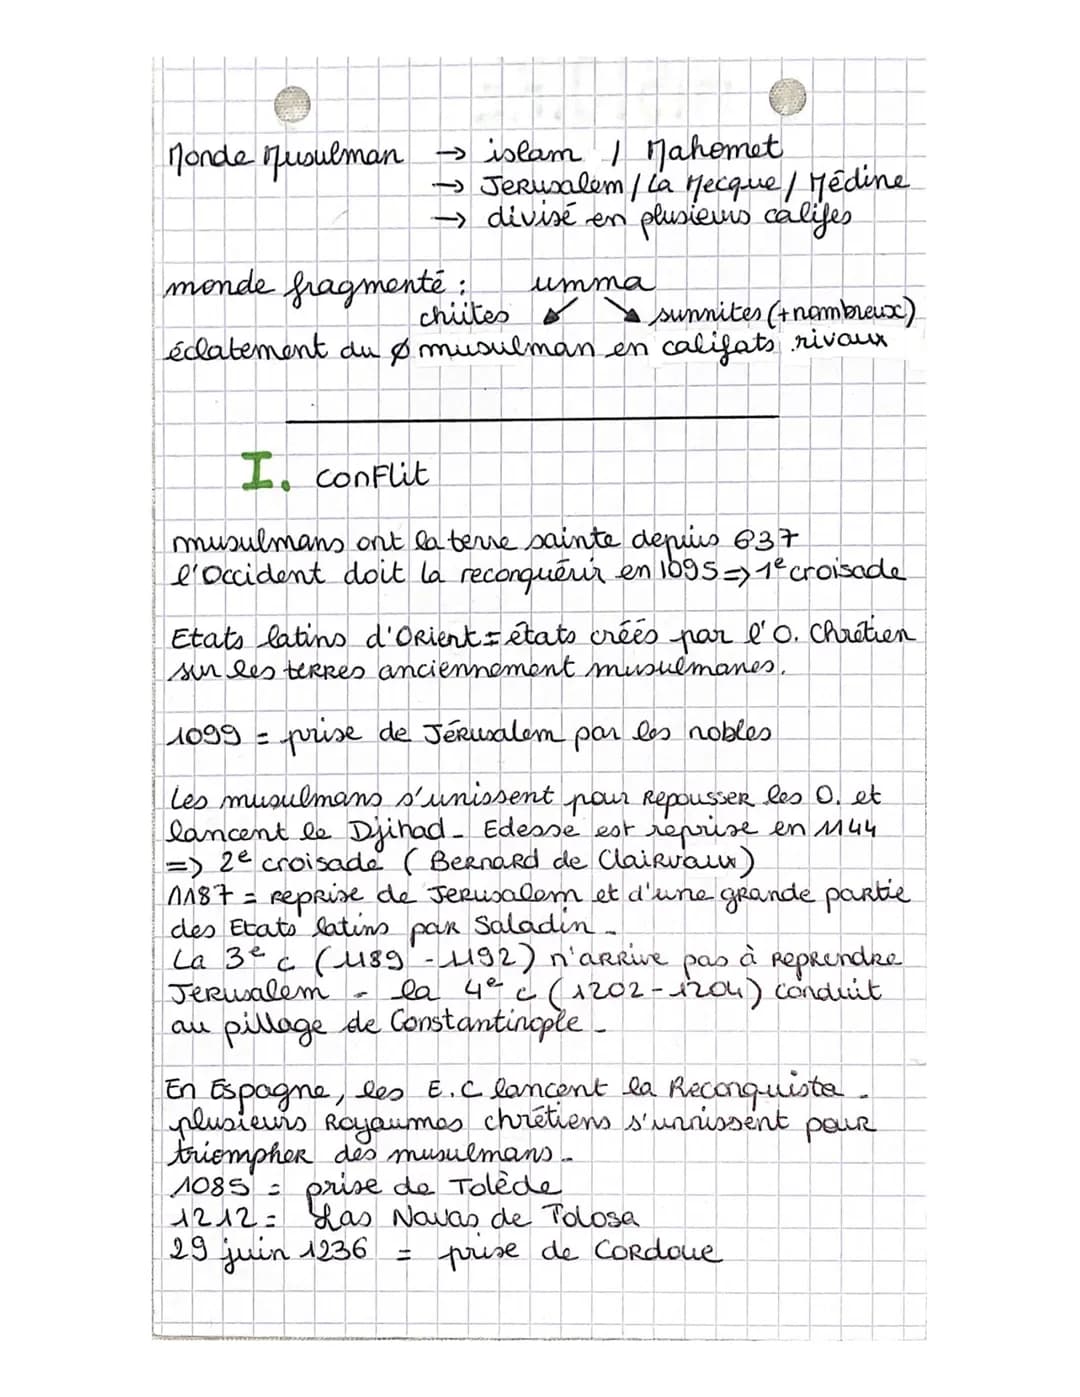 Monde Musulman → islam / Mahomet
→ Jerusalem / La Mecque / Médine
→ divisé en plusieurs califes
monde fragmenté : umma
chiites ↙ ↘ sunnites (+ nombreux)
éclatement du ø musulman en califats rivaux
I. conflit
musulmans ont la terre sainte depuis 637
l'Occident doit la reconquérir en 1095 => 1e croisade
Etats latins d'Orient = états créés par l'O. Chrétien
sur les terres anciennement musulmanes.
1099 = prise de Jérusalem par les nobles
Les musulmans s'unissent pour repousser les O. et
lancent le Djihad. Edesse est reprise en 1144
=> 2e croisade (Bernard de Clairvaux)
1187 = reprise de Jerusalem et d'une grande partie
des Etats latins par Saladin.
La 3e c (1189 - 1192) n'arrive pas à reprendre
Jerusalem - la 4e c (1202 - 1204) conduit
au pillage de Constantinople.
En Espagne, les E.C lancent la Reconquista.
plusieurs Royaumes chrétiens s'unnissent pour
triompher des musulmans.
1085 = prise de Tolède
1212 = Las Navas de Tolosa
29 juin 1236 = prise de Cordoue